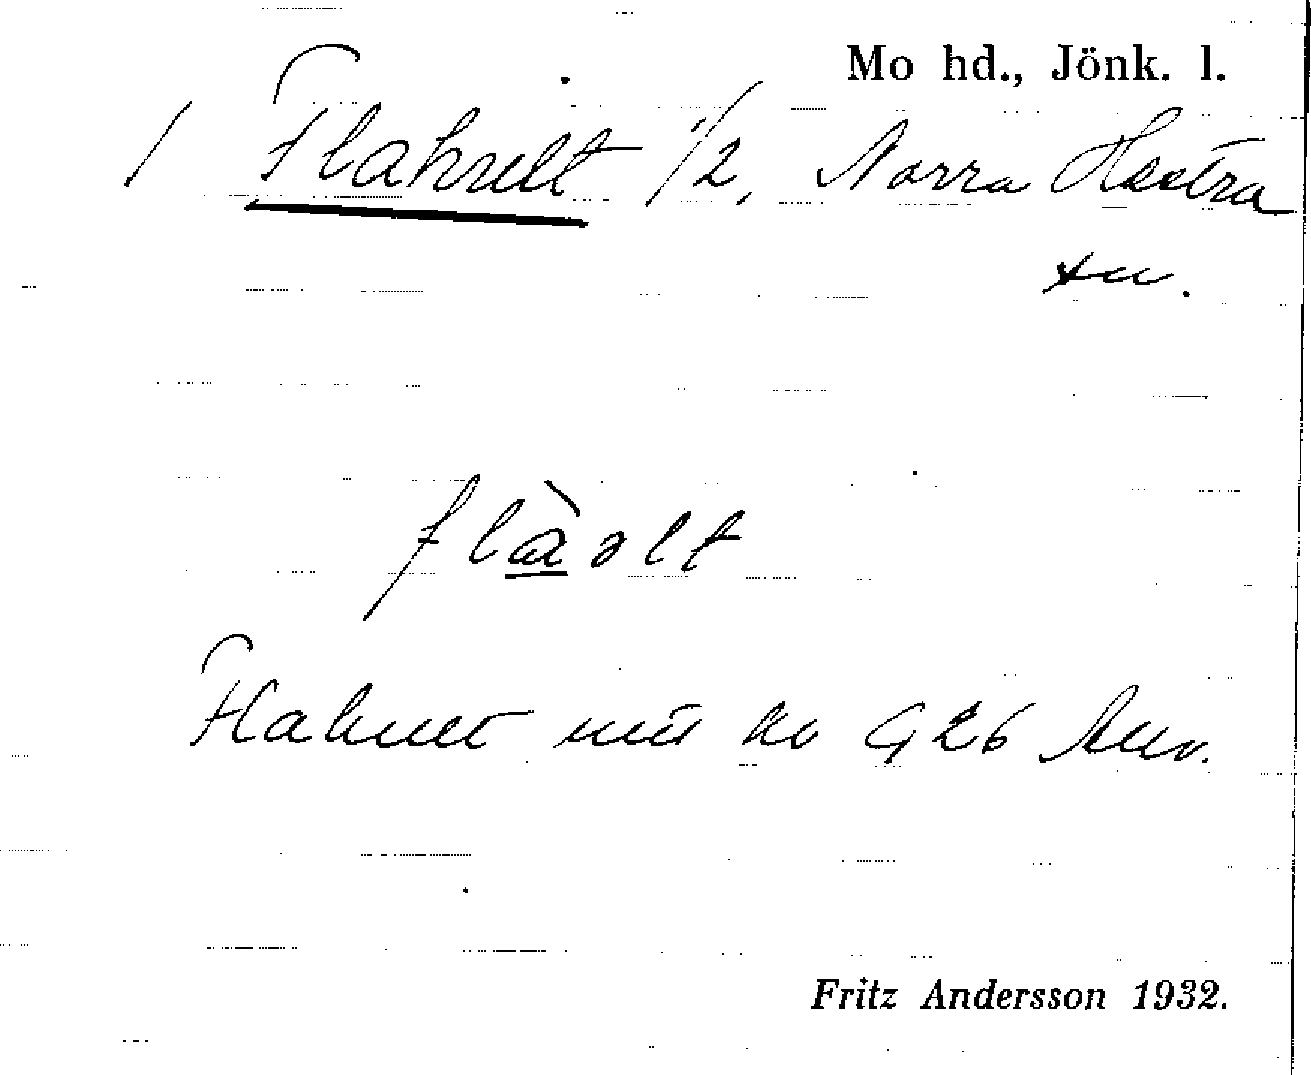 Mo hd., Jönk. l.
/ Flahult 1/2, Norra Hestra
sn.
flàəlt
Flahult
Fritz Andersson 1932.